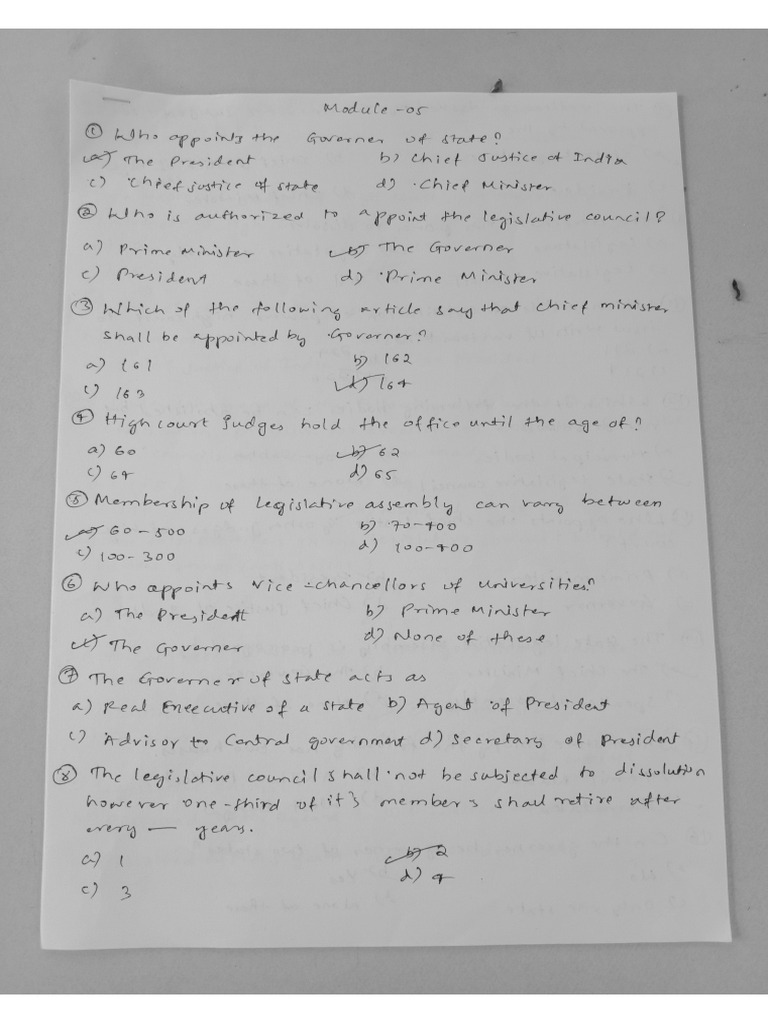 Module -05
① Who appoints the Governer of state?
a) The President b) Chief Justice of India
c) Chief justice of state d) Chief Minister
② Who is authorized to appoint the legislative council?
a) Prime Minister b) The Governer
c) President d) Prime Minister
③ Which of the following article say that chief minister
shall be appointed by Governer?
a) 161 b) 162
c) 163 d) 164
④ High court Judges hold the office until the age of?
a) 60 b) 62
c) 64 d) 65
⑤ Membership of legislative assembly can vary between
a) 60 - 500 b) 70-400
c) 100-300 d) 100-400
⑥ Who appoints Vice-chancellors of universities?
a) The President b) Prime Minister
c) The Governer d) None of these
⑦ The Governer of state acts as
a) Real Executive of a state b) Agent of President
c) Advisor to Central government d) Secretary of President
⑧ The legislative council shall not be subjected to dissolution
however one-third of it's members shall retire after
every — years.
a) 1 b) 2
c) 3 d) 4